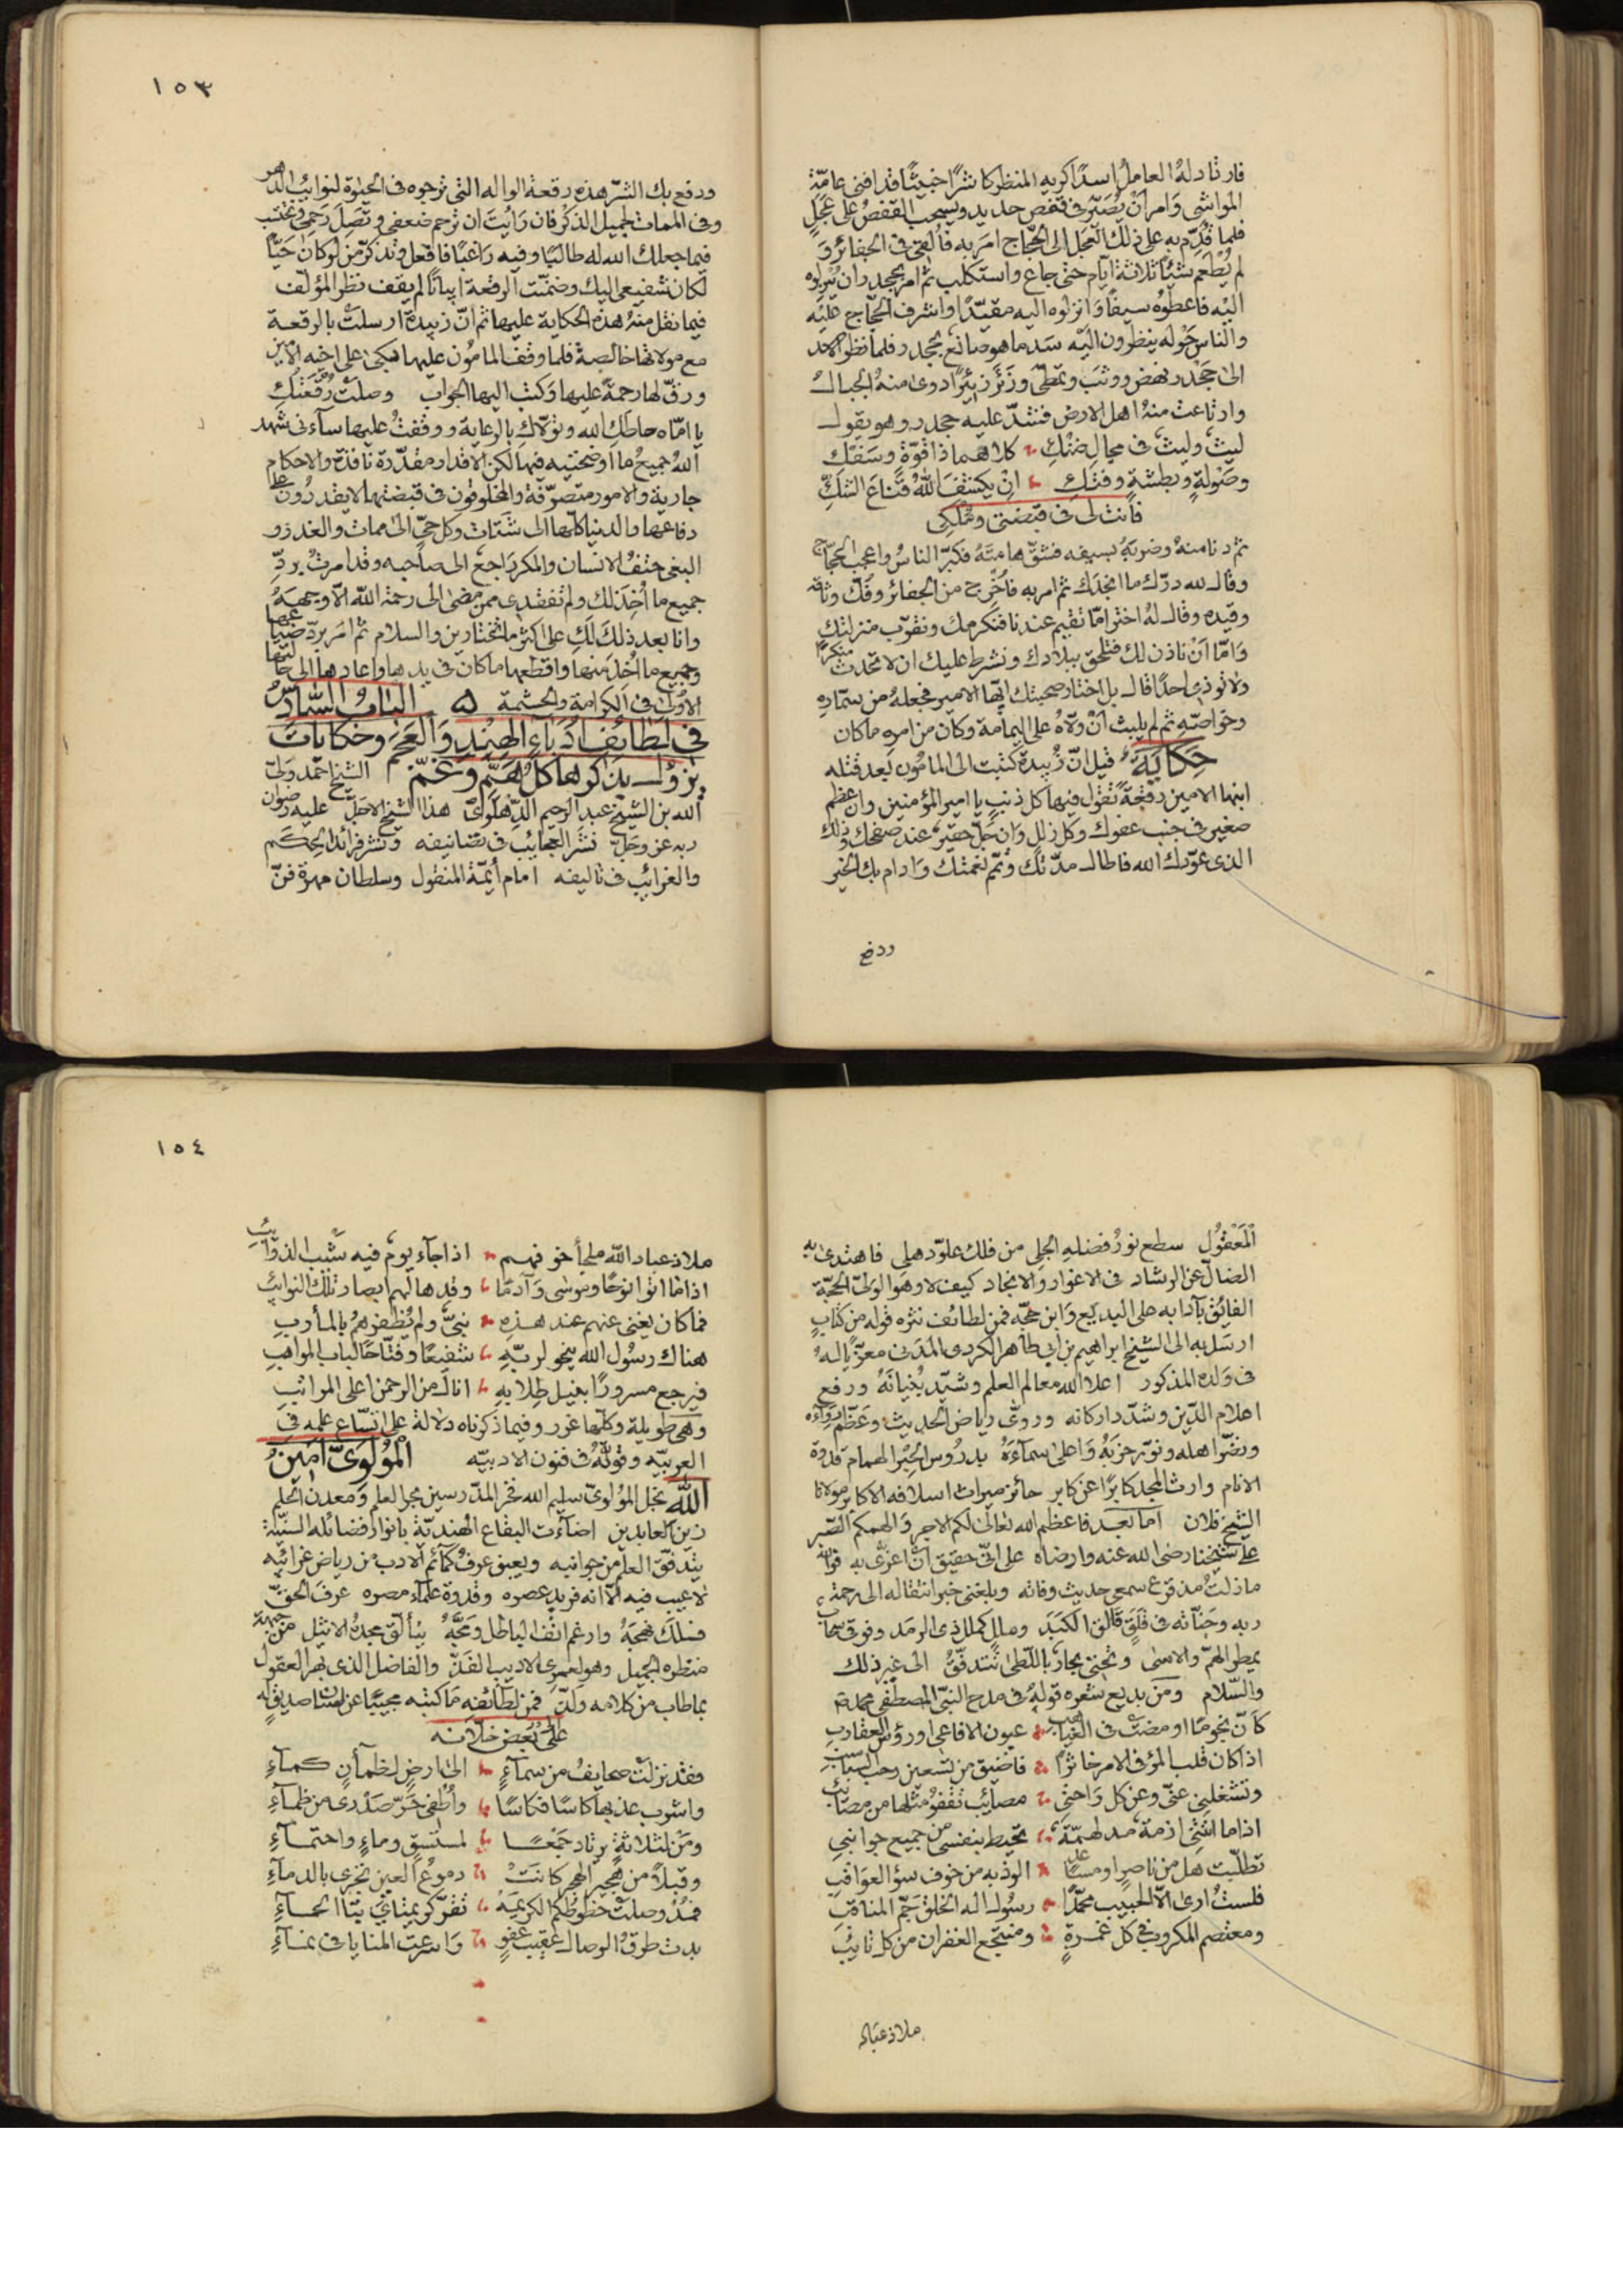 فارتادله العامل اسدًا كريه المنظر كاشرًا خبيثًا قد افنى عامّة
المواشي وَامر اَنْ يُصَيّر في قفص حديد ويسحب القفصُ على عَجَلٍ
فلما قُدِّم به على ذلك العَجَل الى الحجّاج امَر به فاُلقى في الحفائر وَ
لم يُطعم شيئًا ثلاثة ايّام حتى جاع واستكلب ثم امر بجحدر ان يُنزلوه
اليْه فاعطوْه سيفًا وَانزلوه اليه مقيّدًا واشرف الحجّاج عليْه
والناس حَوْله ينظرون اليْه سَد ما هو صانع بجحدر فلما نظر الاسد
الى جَحْدر نهض ووثبَ وتمطّى وزَئَر زئيرًا دوى منهُ الجبالُ
وارتاعت منهُ اهل الارض فشدّ عليه جحدر وهو يقول
ليثٌ وليثٌ في مجال ضنْكِ كلاهما ذا قوّةٍ وسَفْكِ
وصَوْلةٍ وبطشةٍ وفتكِ انْ يكشفَ اللهُ قناعَ الشكِّ
فأنت لي في قبضتي ومُلكي
ثم دنا منهُ وضربَهُ بسيفه فشقّ هامتَهُ فكبّر الناسُ واعجب الحجّاج
وقال لله درّك ما انجدَك ثم امر به فاُخرج من الحفائر وفكّ وثاقه
وقيده وقال لهُ اختر امّا تقيم عندنا فنكرمك ونقرّب منزلتك
وَامّا اَنْ ناذن لك فتلحق ببلادك ونشرط عليك ان لا تحدث منكرًا
ولا توذي احدًا قال بل اختار صحبتك ايّها الامير فجعلهُ من سمّاره
وخواصّه ثم لم يلبث اَنْ ولّاهُ على اليمامة وكان من امره ما كان
حكايَة قيل انّ زُبيدة كتبت الى المامُون بعد قتله
ابنها الامين رقعةً تقول فيها كل ذنبٍ يا امير المؤمنين وان عظم
صغير في جنب عفوك وكل زلل وَان جَلّ حقير عند صفحك وذلك
الذي عوّدك الله فاطال مدّتك وتمّم نعمتك وَادام بك الخير
ودفع
١٥٣
ودفع بك الشرّ هذه رقعة الواله التي ترجوه في الحيٰوة لنوائب الدهر
وفي الممات لجميل الذكر فان رَايت ان ترحم ضعفي وتصِلَ رَحِمي وتحتسب
فيما جعلك الله له طالبًا وفيه رَاغبًا فافعل وتذكّر من لو كان حَيًّا
لكان شفيعي اليك وضمّنت الرقعة ابياتًا لم يقف نظر المؤلف
فيما نقل منهُ هذه الحكاية عليها ثم انّ زبيدة ارسلتْ بالرقعة
مع مولاتها خالصة فلما وقف المامُون عليها بكى على اخيه الامين
ورقّ لها رحمةً عليها وَكتب اليها الجواب وصلَتْ رُقْعَتُكِ
يا امّاه حاطكِ الله وتولّاكِ بالرعاية ووقفتُ عليها سآءني شهد
اللهُ جميعُ ما اوضحتيه فيها لكن الاقدار مقدّرة نافذة والاحكام
جارية والامور متصرّفة والمخلوقون في قبضتها لا يقدرُون على
دفاعها والدنيا كلّها الى شَتات وكل حيّ الى ممات والغدر و
البغي حتفُ الانسان والمكر رَاجع الى صاحبه وقد امرتُ بردِّ
جميع ما اُخذ لك ولم تفقدي ممن مضى الى رحمة الله الّا وجهَهُ
وانا بعد ذلكَ لَكِ على اكثر ما تختارين والسلام ثم امَر بردّ ضياعها
وجميع ما اُخذ منها واقطعها ما كان في يدها واعادها الى حالتها
الاولى في الكرامة والحشمة البابُ السَّادسُ
في لطائف اُدَباءِ الهند وَالعَجم وحكايات
يزول بذكرها كلّ همٍّ وَغمٍّ الشيخ احمد ولي
الله بن الشيخ عبد الرحيم الدّهلوي هذا الشيخ الاجلّ عليه رضوان
ربه عز وجَلّ نشَر العجايب في تصانيفه ونثر فرائد الحِكَم
والغرائب في تاليفه امام أيمّة المنقول وسلطان مهرة فنّ
الْمَعْقُول سطع نورُ فضلهِ الجلي من فلك علوّ دهلي فاهتدى به
الضالّ عن الرشاد في الاغوار وَالانجاد كيف لا وهو الوليّ الحجّة
الفائق بآدابه على البديع وَابن حجّه فمن لطائف نثره قوله من كتابٍ
ارسَل به الى الشيخ ابراهيم بن ابي طاهر الكردي المدَني معزّيًا لهُ
في وَلده المذكور اعلا الله معالم العلم وشيّد بُنيانَهُ ورفع
اعلام الدّين وشدّد اركانه وروّى رياض الحديث وعَظّم رُوَاءَه
ونضّر اهله ونوّر حزبَهُ وَاعلى سمآءَهُ بدرُوس الحَبْر الهمام قدوة
الانام وارث المجد كابرًا عن كابر حائز ميراث اسلافه الاكابر مولانا
الشيخ فلان امّا بعد فاعظم الله تعالى لكم الاجر وَالهمكم الصّبر
على شيخنا رضي الله عنه وارضاه على انّي حقيق انْ اعزّى به فوالله
ما زلتُ مذ قرع سمعي حديث وفاته وبلغني خبر انتقاله الى رحمة
ربه وجَنّاته في قَلَقٍ فَالق الكَبَدَ وملالٍ كملل ذي الرمَد وفوقي سحاب
يمطر الهمّ والاسى وتحتي بحارٌ باللّظى تتدفّقُ الى غير ذلك
والسّلام ومن بديع شعره قولهُ في مدح النبيّ المصطفى محمد
كاَنّ نجومًا اومضتْ في الغياهب عيون الافاعي او رؤس العقارب
اذا كان قلب المرْء في الامر خاثرًا فاضيق من تسعين رحب السباسب
وتشغلني عنّي وعن كل رَاحتي مصائب تقفوْ مثلها من مصائب
اذا ما اتتني ازمة مدلهمّةٌ تحيط بنفسي من جميع جوانبي
تطلّبت هل من ناصرٍ او مساعد الوذ به من خوف سوْء العوَاقب
فلستُ ارى الّا الحبيب محمّدًا رسُول اله الخلق جَمّ المناقب
ومعتصم المكروب في كل غمْرةٍ ومنتجع الغفران من كل تائب
ملاذ عباد
١٥٤
ملاذ عباد الله ملجأ خوفهم اذا جآء يومٌ فيه شَيْب الذوَائب
اذا ما اتوا نوحًا وموسى وَآدمًا وقد هالهم ابصار تلك النوائب
فما كان يغني عنهم عند هذِه نبيٌّ ولم يُظفرهُمْ بالمأرب
هناك رسُول الله ينحو لربّهِ شفيعًا وفتّاحًا لباب المواهب
فيرجع مسرورًا بنيل طِلابهِ انالهُ من الرحمن اعلى المراتب
وهي طويلة وكلّها غرر وفيما ذكرناه دلالة على اتّساع علمه في
العربيّه وقوّتَهُ في فنون الادبيّه الْمُولَوِيّ امينُ
اللّٰه نجل المُولويّ سليم الله فخر المدّرسين بحر العلم وَمعدن الحلم
زين العابدين اضآءت البقاع الهنديّة بانوار فضائله السنيّة
يتدفّق العلم من جوانبه ويعبق عرفُ كمآئم الادب من رياض غرائبه
لا عيب فيه الّا انه فريد عصره وقدوة علمآء مصره عرفَ الحَقّ
فسلكَ نهجَهُ وارغم انف الباطل وَمَجَّهُ يتألّق مجدهُ الاثيل من جبهة
منظره الجميل وهو لعمري الاديب الفَذّ والفاضل الذي بهر العقول
بما طاب من كلامه ولَذّ فمن لطائفه مَا كتبه مجيبًا عن كتاب صديق له
على بعض خلّانه
وقد نزلتْ صحايفُ من سمآءٍ الى ارضٍ لظمأنٍ كمآءِ
واشرب عذبها كاسًا فكاسًا واُطفي حَرَّ صَدْري من ظمآءِ
ومَنْ لثلاثةٍ يرتاد جَمْعًا لمستسقٍ وماءٍ واحتمآءِ
وقبلًا من هجير الهجر كانتْ دموعُ العين تجري بالدمآءِ
فمُذْ وصلَتْ خطوطُكم الكريمَهْ
بدت طرقُ الوصال عقيب عفوٍ وَاسرعت المنايا في نمآءِ